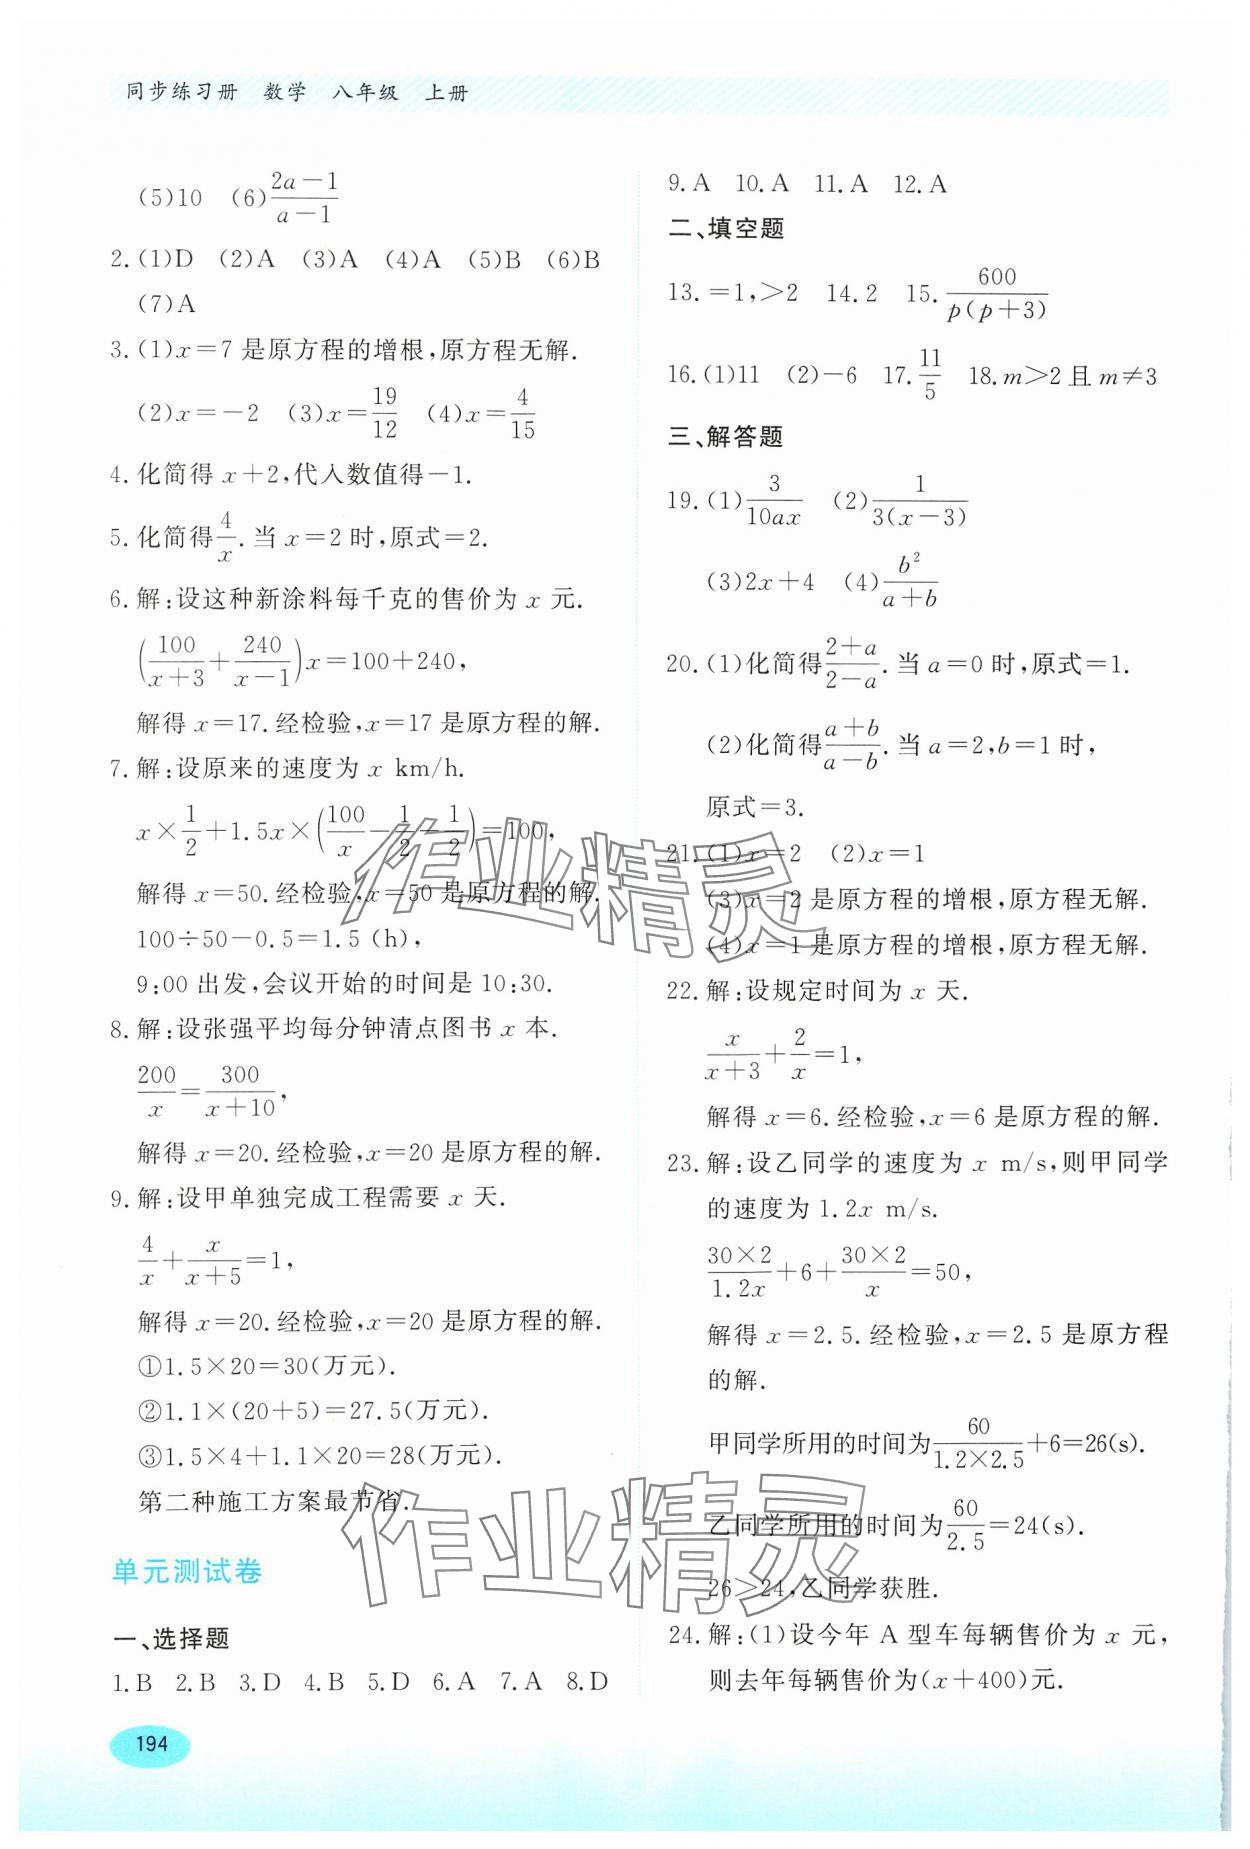 同步练习册 数学 八年级 上册
(5)10 (6)\frac{2a-1}{a-1}
2.(1)D (2)A (3)A (4)A (5)B (6)B
(7)A
3.(1)x=7 是原方程的增根,原方程无解.
(2)x=-2 (3)x=\frac{19}{12} (4)x=\frac{4}{15}
4.化简得 x+2,代入数值得-1.
5.化简得\frac{4}{x}.当 x=2 时,原式=2.
6.解:设这种新涂料每千克的售价为 x 元.
(\frac{100}{x+3}+\frac{240}{x-1})x=100+240,
解得 x=17.经检验,x=17 是原方程的解.
7.解:设原来的速度为 x km/h.
x×\frac{1}{2}+1.5x×(\frac{100}{x}-\frac{1}{2}-\frac{1}{2})=100,
解得 x=50.经检验,x=50 是原方程的解.
100÷50-0.5=1.5 (h),
9:00 出发,会议开始的时间是 10:30.
8.解:设张强平均每分钟清点图书 x 本.
\frac{200}{x}=\frac{300}{x+10},
解得 x=20.经检验,x=20 是原方程的解.
9.解:设甲单独完成工程需要 x 天.
\frac{4}{x}+\frac{x}{x+5}=1,
解得 x=20.经检验,x=20 是原方程的解.
①1.5×20=30(万元).
②1.1×(20+5)=27.5(万元).
③1.5×4+1.1×20=28(万元).
第二种施工方案最节省.
单元测试卷
一、选择题
1.B 2.B 3.D 4.B 5.D 6.A 7.A 8.D
9.A 10.A 11.A 12.A
二、填空题
13.=1,>2 14.2 15.\frac{600}{p(p+3)}
16.(1)11 (2)-6 17.\frac{11}{5} 18.m>2 且 m≠3
三、解答题
19.(1)\frac{3}{10ax} (2)\frac{1}{3(x-3)}
(3)2x+4 (4)\frac{b^2}{a+b}
20.(1)化简得\frac{2+a}{2-a}.当 a=0 时,原式=1.
(2)化简得\frac{a+b}{a-b}.当 a=2,b=1 时,
原式=3.
21.(1)x=2 (2)x=1
(3)x=2 是原方程的增根,原方程无解.
(4)x=1 是原方程的增根,原方程无解.
22.解:设规定时间为 x 天.
\frac{x}{x+3}+\frac{2}{x}=1,
解得 x=6.经检验,x=6 是原方程的解.
23.解:设乙同学的速度为 x m/s,则甲同学
的速度为 1.2x m/s.
\frac{30×2}{1.2x}+6+\frac{30×2}{x}=50,
解得 x=2.5.经检验,x=2.5 是原方程
的解.
甲同学所用的时间为\frac{60}{1.2×2.5}+6=26(s).
乙同学所用的时间为\frac{60}{2.5}=24(s).
26>24,乙同学获胜.
24.解:(1)设今年 A 型车每辆售价为 x 元,
则去年每辆售价为(x+400)元.
194
作业精灵
作业精灵